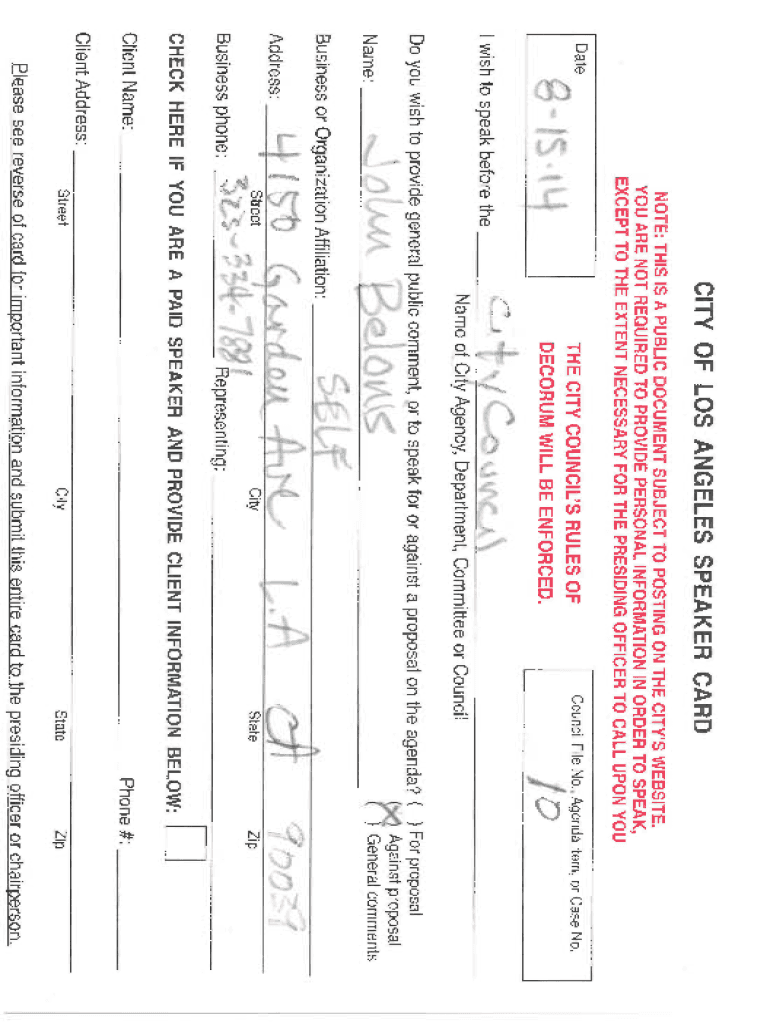 CITY OF LOS ANGELES SPEAKER CARD
NOTE: THIS IS A PUBLIC DOCUMENT SUBJECT TO POSTING ON THE CITY'S WEBSITE.
YOU ARE NOT REQUIRED TO PROVIDE PERSONAL INFORMATION IN ORDER TO SPEAK,
EXCEPT TO THE EXTENT NECESSARY FOR THE PRESIDING OFFICER TO CALL UPON YOU
Date
8-15-14
THE CITY COUNCIL'S RULES OF
DECORUM WILL BE ENFORCED.
Council File No., Agenda Item, or Case No.
10
I wish to speak before the City Council
Name of City Agency, Department, Committee or Council
Do you wish to provide general public comment, or to speak for or against a proposal on the agenda? ( ) For proposal
(X) Against proposal
( ) General comments
Name: John Belonis
Business or Organization Affiliation: SELF
Address: 4150 Garden Ave L.A CA 90039
Street City State Zip
Business phone: 323-334-7881 Representing:
CHECK HERE IF YOU ARE A PAID SPEAKER AND PROVIDE CLIENT INFORMATION BELOW:
Client Name: Phone #:
Client Address:
Street City State Zip
Please see reverse of card for important information and submit this entire card to the presiding officer or chairperson.